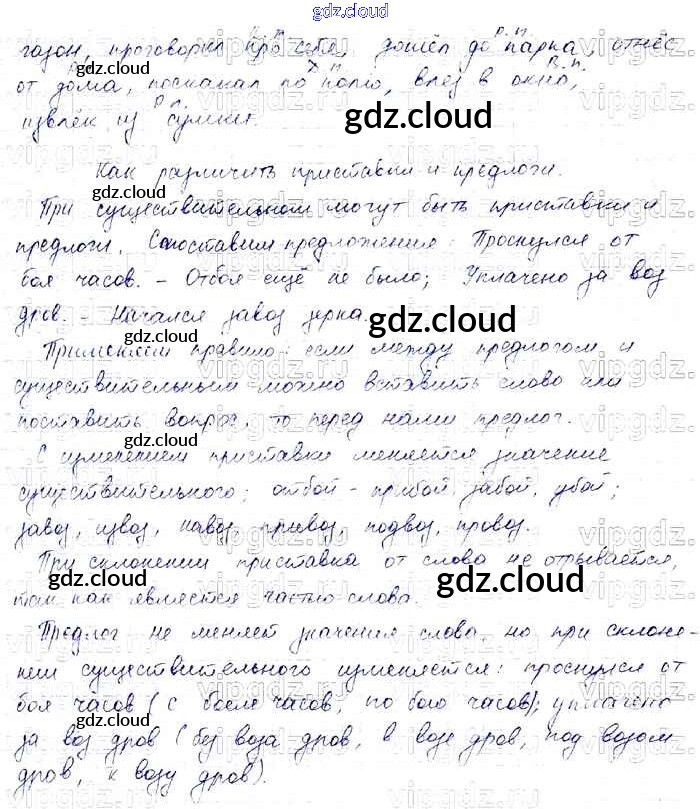 gdz.cloud
газон, проговорил про себя, дошёл до парка, отнёс
gdz.cloud
от дома, поскакал по полю, влез в окно,
извлёк из сумки.
gdz.cloud
Как различить приставки и предлоги.
gdz.cloud
При существительном могут быть приставки и
предлоги. Сопоставим предложения: Проснулся от
боя часов. – Отбоя ещё не было; Уплачено за воз
дров. – Начался завоз зерна.
gdz.cloud
Применяем правило: если между предлогом и
существительным можно вставить слово или
поставить вопрос, то перед нами предлог.
gdz.cloud
С изменением приставки меняется значение
существительного: отбой - прибой, забой, убой;
завоз, извоз, навоз, привоз, подвоз, провоз.
При склонении приставка от слова не отрывается,
gdz.cloud
gdz.cloud
так как является частью слова.
Предлог не меняет значения слова, но при склоне-
нии существительного изменяется: проснулся от
боя часов (с боем часов, по бою часов); уплачено
gdz.cloud
за воз дров (без воза дров, в возе дров, под возом
дров, к возу дров).